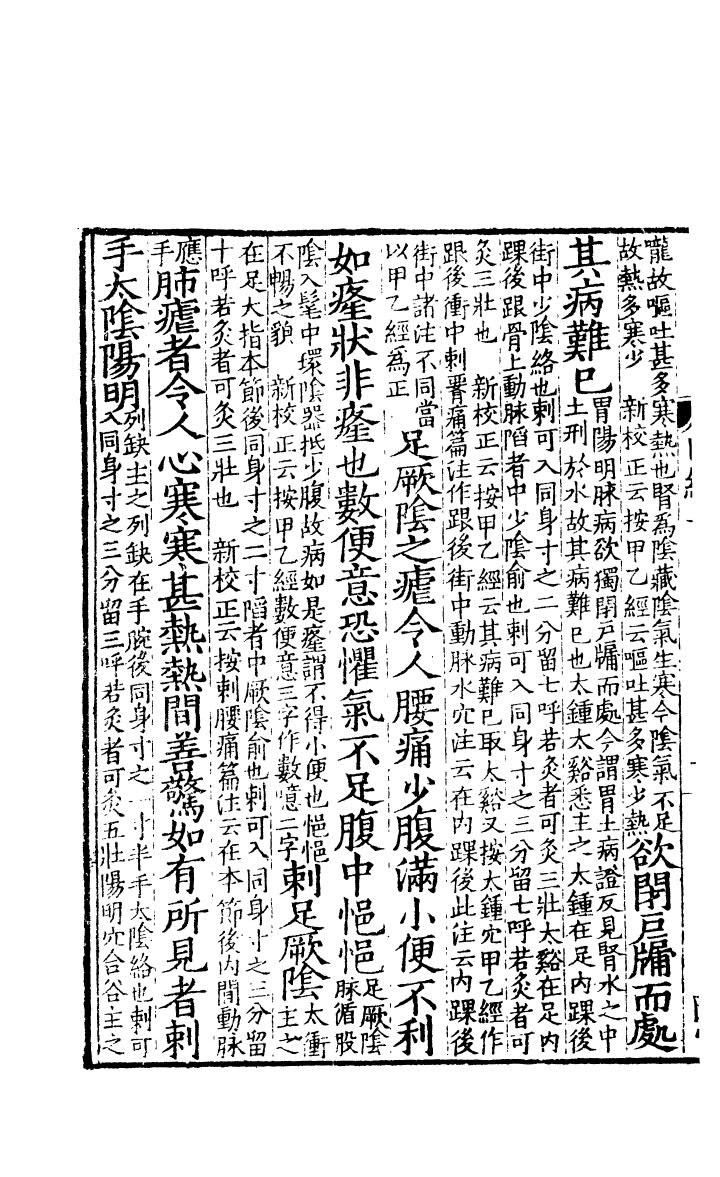 嚨故嘔吐甚多寒熱也腎爲陰藏陰氣生寒今陰氣不足
故熱多寒少 新校正云按甲乙經云嘔吐甚多寒少熱
欲閉戶牖而處
其病難已
胃陽明脉病欲獨閉戶牖而處今謂胃土病證反見腎水之中
土刑於水故其病難已也太鍾太谿悉主之太鍾在足內踝後
街中少陰絡也刺可入同身寸之二分留七呼若灸者可灸三壯太谿在足內
踝後跟骨上動脉陷者中少陰俞也刺可入同身寸之三分留七呼若灸者可
灸三壯也 新校正云按甲乙經云其病難已取太谿又按太鍾穴甲乙經作
跟後衝中刺痛篇注作跟後街中動脉水穴注云在內踝後此注云內踝後
街中諸注不同當
以甲乙經爲正
足厥陰之瘧令人腰痛少腹滿小便不利
如癃狀非癃也數便意恐懼氣不足腹中悒悒
足厥陰
脉循股
陰入髦中環陰器抵少腹故病如是癃謂不得小便也悒悒
不暢之貌 新校正云按甲乙經數便意三字作數噫二字
刺足厥陰
太衝
主之
在足大指本節後同身寸之二寸陷者中厥陰俞也刺可入同身寸之三分留
十呼若灸者可灸三壯也 新校正云按刺腰痛篇注云在本節後內間動脉
應
手
肺瘧者令人心寒寒甚熱熱間善驚如有所見者刺
手太陰陽明
列缺主之列缺在手腕後同身寸之一寸半手太陰絡也刺可
入同身寸之三分留三呼若灸者可灸五壯陽明穴合谷主之